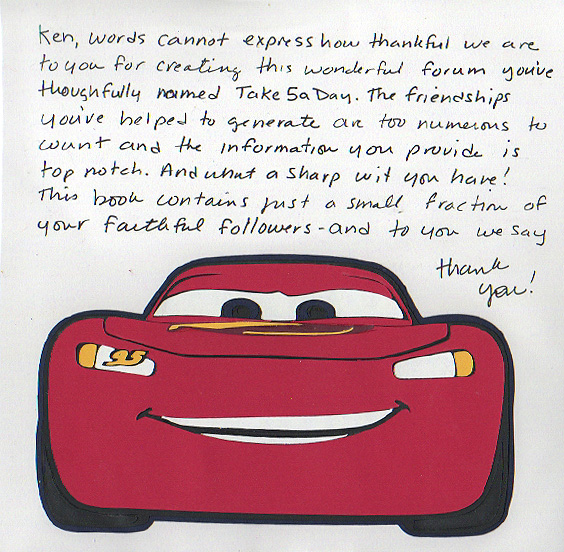 Ken, words cannot express how thankful we are
to you for creating this wonderful forum you've
thoughfully named Take 5 a Day. The friendships
you've helped to generate are too numerous to
count and the information you provide is
top notch. And what a sharp wit you have!
This book contains just a small fraction of
your faithful followers - and to you we say
thank
you!
95